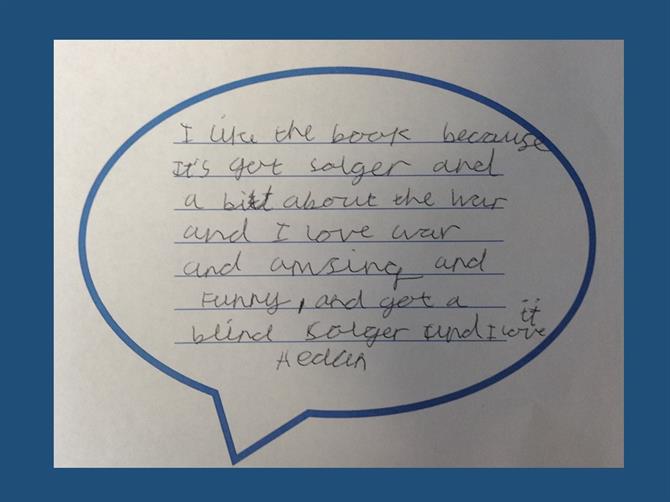 I like the book because
It's got solger and
a bit about the war
and I love war
and amsing and
Funny, and got a
blind solger and I love it